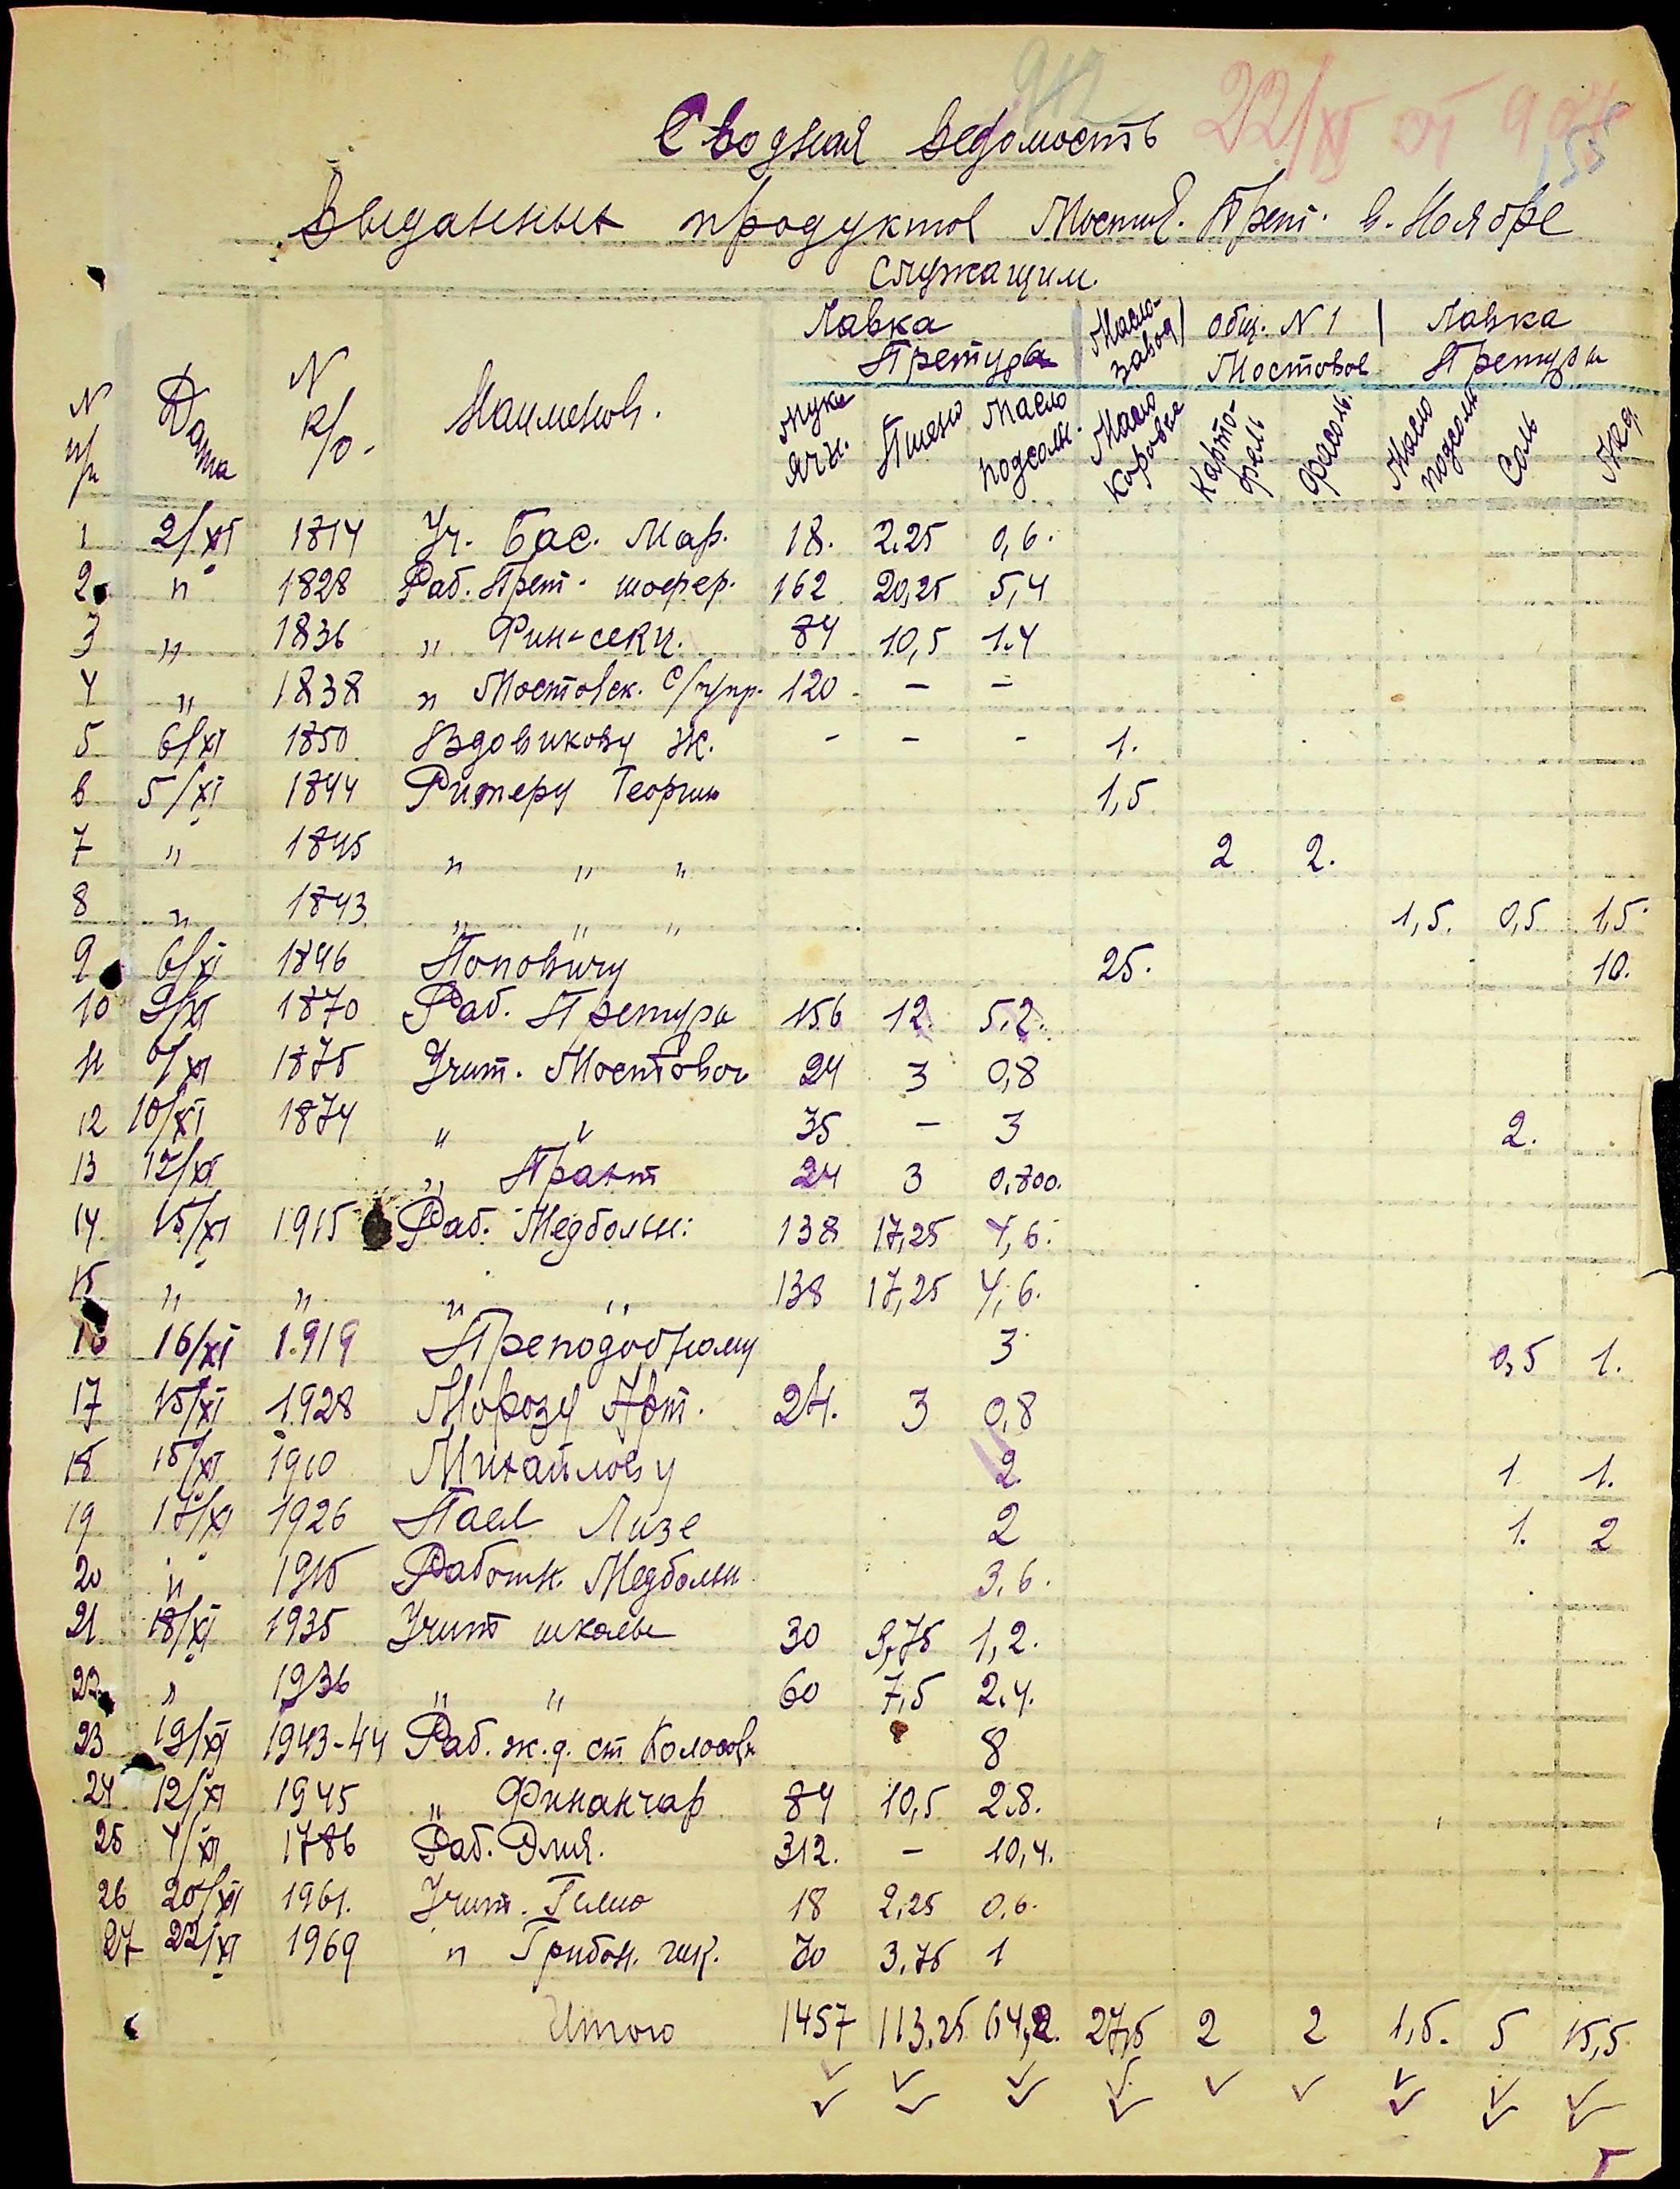 912
22/XI
Сводная ведомость
выданных продуктов Мостов. Прет. в. Ноябре
служащим.
Лавка Претуры | Масло-завод | Общ. N 1 Мостовое | Лавка Претуры
N п/п Дата N Р/о. Наименов. Мука ячн. Пшено Масло подсолн. Масло коровье Картофель Фасоль. Масло подсолн Соль
1 2/XI 1814 Уч. Бас. Мар. 18. 2.25 0,6.
2 п 1828 Раб. Прет. шофер. 162 20,25 5,4
3 " 1836 " Фин-секц. 84 10,5 1.4
4 " 1838 п Мостовск. С/упр. 120 - -
5 6/XI 1850 Вдовикову Ж. - - - 1.
6 5/XI 1844 Ритеру Георгию 1,5
7 " 1845 п " " 2 2.
8 п 1843 " " " 1,5. 0,5 1,5.
9 6/XI 1846 Поповичу 25. 10.
10 9/XI 1870 Раб. Претуры 156 12. 5.2.
11 9/XI 1875 Учит. Мостовое 24 3 0,8
12 10/XI 1874 " " 35 - 3 2.
13 12/XI " Практ 24 3 0,800.
14 15/XI 1915 Раб. Медбольн: 138 17,25 4,6.
15 " " " " 138 17,25 4,6.
16 16/XI 1.919 Преподобному 3 0,5 1.
17 15/XI 1928 Морозу Арт. 24. 3 0,8
18 15/XI 1910 Михайлову 2 1 1.
19 17/XI 1926 Паел Лизе 2 1. 2
20 п 1915 Работн. Медбольн 3,6.
21 18/XI 1935 Учит школы 30 3,75 1,2.
22 " 1936 " " 60 7,5 2.4.
23 19/XI 1943-44 Раб. ж.д. ст Колосовк 8
24 12/XI 1945 " Финанчар 84 10,5 2.8.
25 4/XI 1786 Раб. 312. - 10,4.
26 20/XI 1961. Учит. 18 2,25 0,6.
27 22/XI 1969 п Грибон. шк. 30 3,75 1
Итого 1457 113.25 64,2. 27,5 2 2 1,5. 5 15,5.